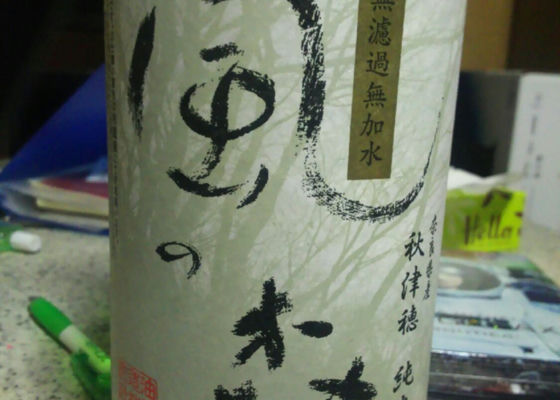 無濾過無加水
風の森
奈良県産
秋津穂 純米
Hello